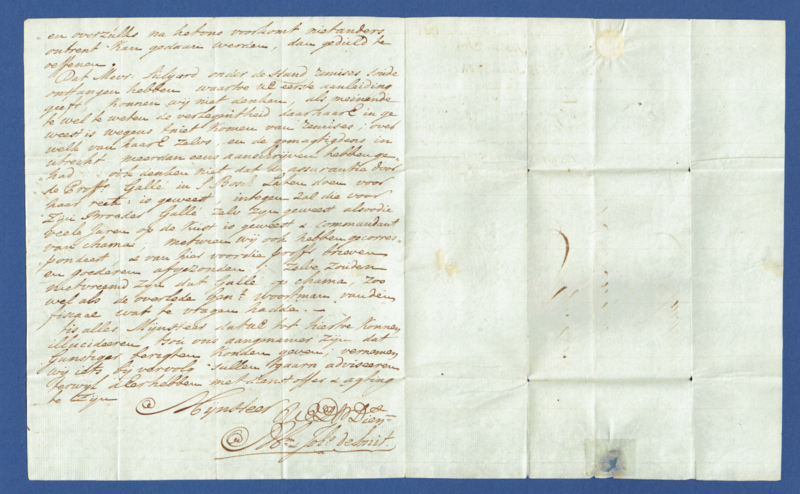 en overzulks na het ons voorkomt niet anders
ontrent kan gedaan werden, dan geduld te
oeffenen.
Dat Mevr. onder de Hand remises
ontfangen hebben waartoe UE eerste aanleiding
geeft, konnen wij niet denken, als meinende
te wel te weten de verlegentheid daar haar E in ge
weest is wegens 't niet komen van remises; over
welk van haar E zelve en de gemagtigdens in
utrecht meerdan eens aanschrijven hebben ge
had. ook denken niet dat de assurantie door
de Galle in doen voor
haar reek: is geweest integen zal die voor
zijn Broeder Galle zelv zijn geweest alsoo die
veele Jaren op de Kust is geweest & commandant
van chama, met wien wij ook hebben gecorres
pondeert & van hier voor die proff brieven
en goederen afgezonden: zelve zouden
niet vreemd zijn dat Galle op chama, zoo
wel als de overlede Gen. Woortman van den
fiscaal wat te vragen hadde.
tis alles Mijnheer dat UE tot hiertoe konnen
illucideeren, zou ons aangenaamer zijn dat
gunstiger berigten konden geven; vernemen
wij iets bij vervolg sullen gaarn adviseeren
terwijl d'Eer hebben met dienst offer & agting
te zijn
Mijn Heer
UE DW Dien